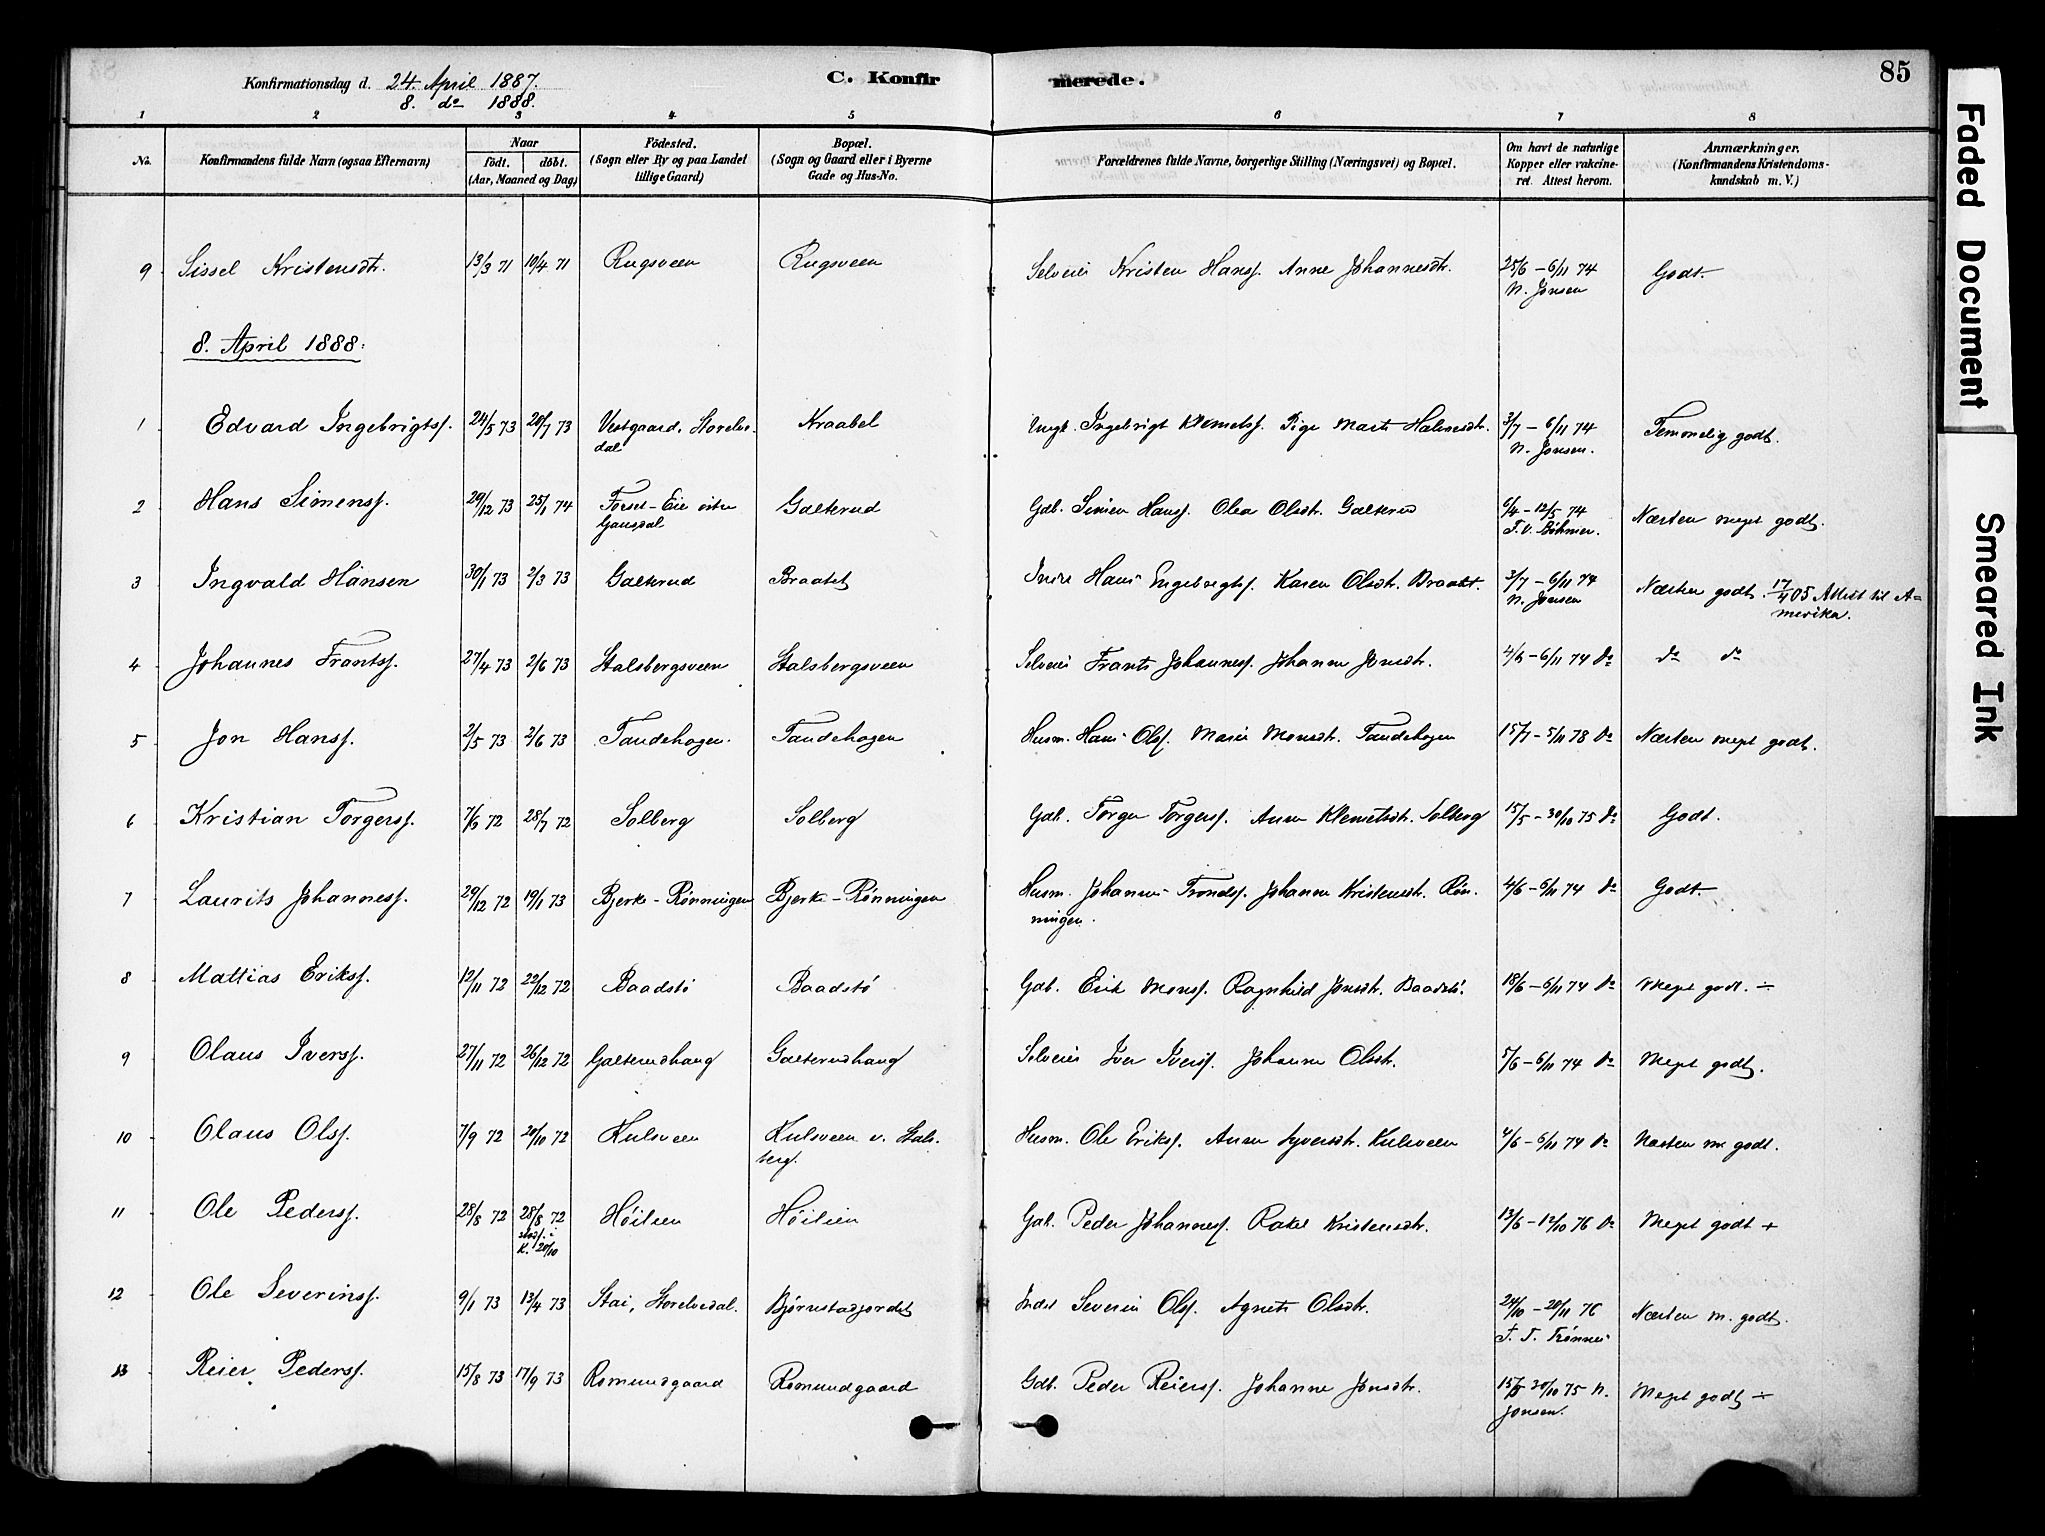 Konfirmationsdag d. 24. April 1887.
8. do 1888.
C. Konfirmerede.
85
1 2 3 4 5 6 7 8
No.
Konfirmandens fulde Navn (ogsaa Efternavn)
Naar
født. døbt.
(Aar, Maaned og Dag)
Fødested.
(Sogn eller By og paa Landet
tillige Gaard)
Bopæl.
(Sogn og Gaard eller i Byerne
Gade og Hus-No.
Forældrenes fulde Navne, borgerlige Stilling (Næringsvei) og Bopæl.
Om havt de naturlige
Kopper eller vakcine-
ret. Attest herom.
Anmærkninger.
(Konfirmandens Kristendoms-
kundskab m. V.)
9 Sissel Kristensdtr. 13/3 71 10/4 71 Rugsveen Rugsveen Selveier Kristen Hanss. Anne Johannesdtr. 25/6 – 6/11 74 Godt.
N. Jonsen
8. April 1888:
1 Edvard Ingebrigtss. 24/5 73 20/7 73 Vestgaard, Storelve- Kraabel Ungk. Ingebrigt Klemetss. Pige Marte Halvesdtr. 3/7 – 6/11 74 Temmelig godt.
dal N. Jonsen.
2 Hans Simenss. 29/12 73 25/1 74 Forset-Eie østre Galterud Gdb. Simen Hanss. Olea Olsdtr. Galterud 6/4 – 12/5 74 Næsten meget godt.
Gausdal T. v. Böhmer.
3 Ingvald Hansen 30/1 73 2/3 73 Galterud Braatet Inder. Hans Engebregtss. Karen Olsdtr. Braatet. 3/7 – 6/11 74 Næsten godt. 17/4 05 Attest til A=
N. Jonsen merika.
4 Johannes Frantss. 27/4 73 2/6 73 Stalsbergsveen Stalsbergsveen Selveier Frants Johanness. Johanne Jonsdtr. 4/6 – 6/11 74 do do do
5 Jon Hanss. 2/5 73 2/6 73 Tandehagen. Tandehagen Husm. Hans Olss. Marie Monsdtr. Tandehagen 15/7 – 5/11 78 do Næsten meget godt.
6 Kristian Torgerss. 7/6 72 28/7 72 Solberg Solberg Gdb. Torger Torgerss. Anne Klemetsdtr. Solberg 15/5 – 30/10 75 do Godt.
7 Laurits Johanness. 29/12 72 19/1 73 Bjerke-Rønningen Bjerke-Rønningen Husm. Johannes Trondss. Johanne Kristensdtr. Røn- 4/6 – 6/11 74 do Godt.
ningen.
8 Mattias Erikss. 12/11 72 22/12 72 Baadstø Baadstø Gdb. Erik Monss. Ragnhild Jonsdtr. Baadstø. 18/6 – 6/11 74 do Meget godt. ÷
9 Olaus Iverss. 27/11 72 26/12 72 Galterudhaug Galterudhaug Selveier Iver Iverss. Johanne Olsdtr. 5/6 – 6/11 74 do Meget godt.
10 Olaus Olss. 7/9 72 20/10 72 Kulsveen Kulsveen v. Stals- Husm. Ole Erikss. Anne Syversdtr. Kulsveen 4/6 – 6/11 74 do Næsten m. godt.
berg.
11 Ole Pederss. 28/8 72 28/8 72 Høilien Høilien Gdb. Peder Johanness. Rakel Kristensdtr. 13/6 – 12/10 76 do Meget godt +
stadf. i
K. 20/10
12 Ole Severinss. 9/1 73 13/4 73 Stai, Storelvedal. Bjørnstadjordet Inderst Severin Olss. Agnete Olsdtr. 24/10 – 20/11 76 Næsten m. godt.
T. T. Trønnes
13 Reier Pederss. 15/8 73 17/9 73 Romundgaard Romundgaard Gdb. Peder Reierss. Johanne Jonsdtr. 15/5 30/10 75 N. Meget godt ÷
Jonsen.
Faded Document
Smeared Ink